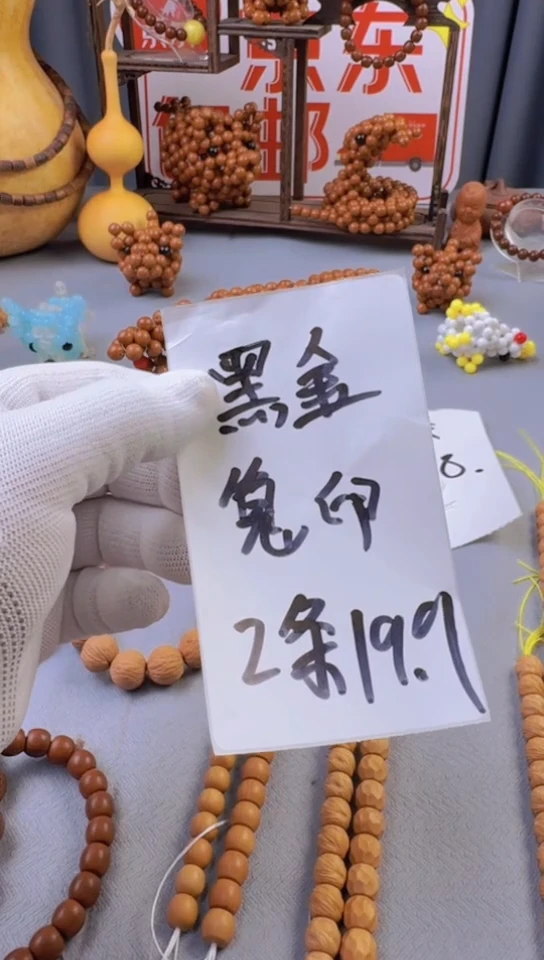 京东
包邮
黑金
兔印
2条19.9
0.